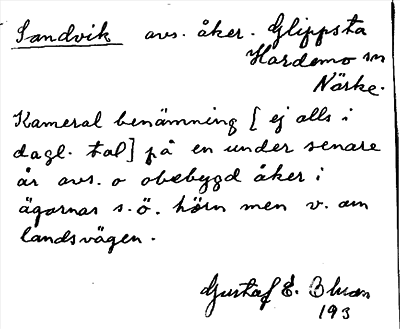 Sandvik avs. åker. Glippsta
Hardemo sn
Närke.
Kameral benämning [ej alls i
dagl. tal] på en under senare
år avs. o obebygd åker i
ägornas s.ö. hörn men v. om
landsvägen.
Gustaf E. Bluon
193